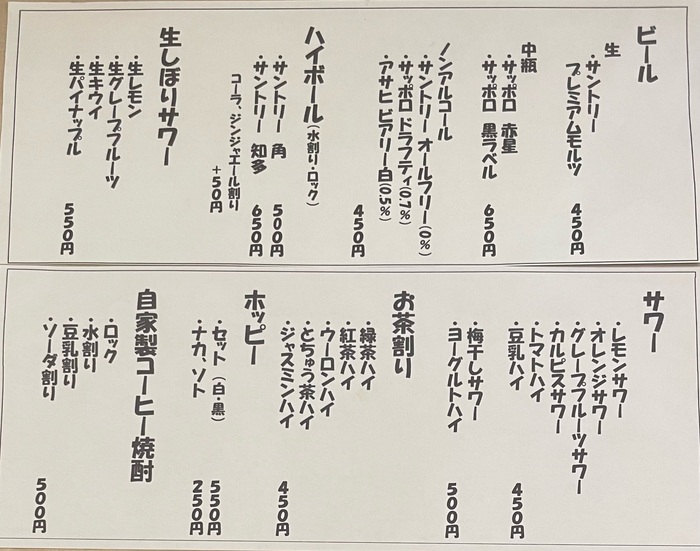 ビール
生
・サントリー
プレミアムモルツ 450円
中瓶
・サッポロ 赤星
・サッポロ 黒ラベル 650円
ノンアルコール
・サントリー オールフリー(0%)
・サッポロ ドラフティ(0.7%)
・アサヒ ビアリー白(0.5%)
450円
ハイボール(水割り・ロック)
・サントリー 角 500円
・サントリー 知多 650円
コーラ、ジンジャエール割り
+50円
生しぼりサワー
・生レモン
・生グレープフルーツ
・生キウイ
・生パイナップル 550円
サワー
・レモンサワー
・オレンジサワー
・グレープフルーツサワー
・カルピスサワー
・トマトハイ
・豆乳ハイ 450円
・梅干しサワー
・ヨーグルトハイ 500円
お茶割り
・緑茶ハイ
・紅茶ハイ
・ウーロンハイ
・とちゅう茶ハイ
・ジャスミンハイ 450円
ホッピー
・セット(白・黒) 550円
・ナカ、ソト 250円
自家製コーヒー焼酎
・ロック
・水割り
・豆乳割り
・ソーダ割り 500円